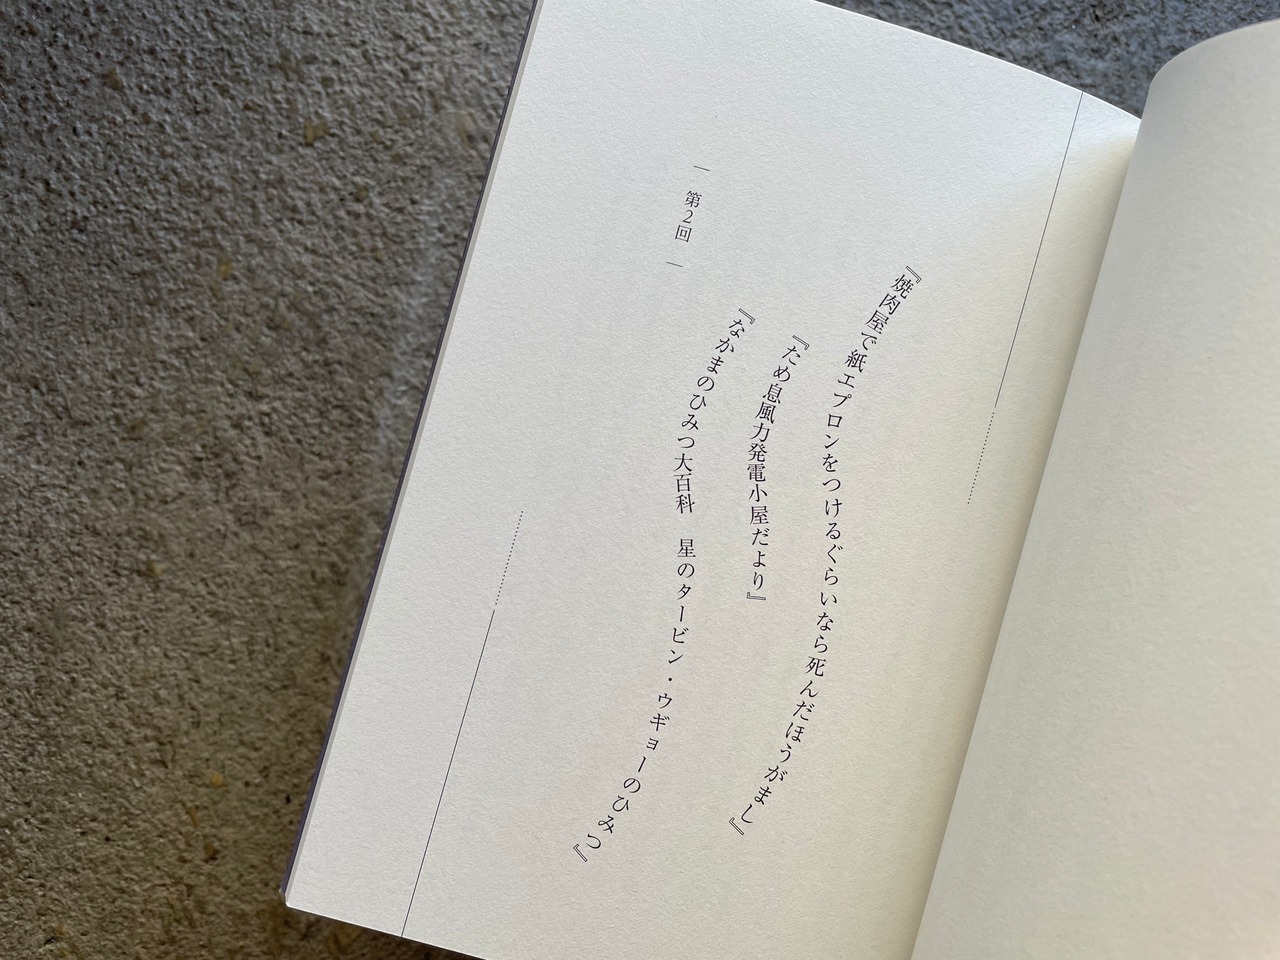 『焼肉屋で紙エプロンをつけるぐらいなら死んだほうがまし』
『ため息風力発電小屋だより』
『なかまのひみつ大百科　星のタービン・ウギョーのひみつ』
― 第2回 ―